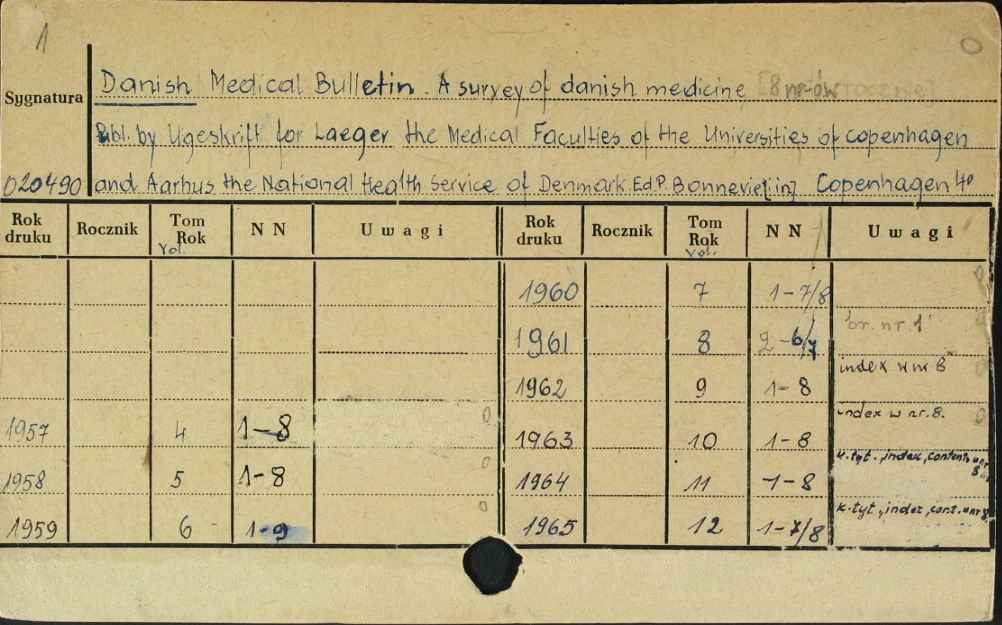 1
Sygnatura
020490
Danish Medical Bulletin. A survey of danish medicine [8 nr-ów rocznie]
Publ. by Ugeskrift for Laeger the Medical Faculties of the Universities of copenhagen
and Aarhus the National Health Service of Denmark. Ed. P. Bonnevie [in] Copenhagen 4°
Rok druku Rocznik Tom Rok Vol. NN Uwagi Rok druku Rocznik Tom Rok Vol. NN Uwagi
1960 7 1-7/8 0
1961 8 2-6/7 br. nr. 1
1962 9 1-8 index w nr 8
1957 4 1-8 0 1963 10 1-8 index w nr. 8.
1958 5 1-8 0 1964 11 1-8 k. tyt., index, contents w nr 8
1959 6 1-9 0 1965 12 1-7/8 k. tyt., index, cont. w nr 8